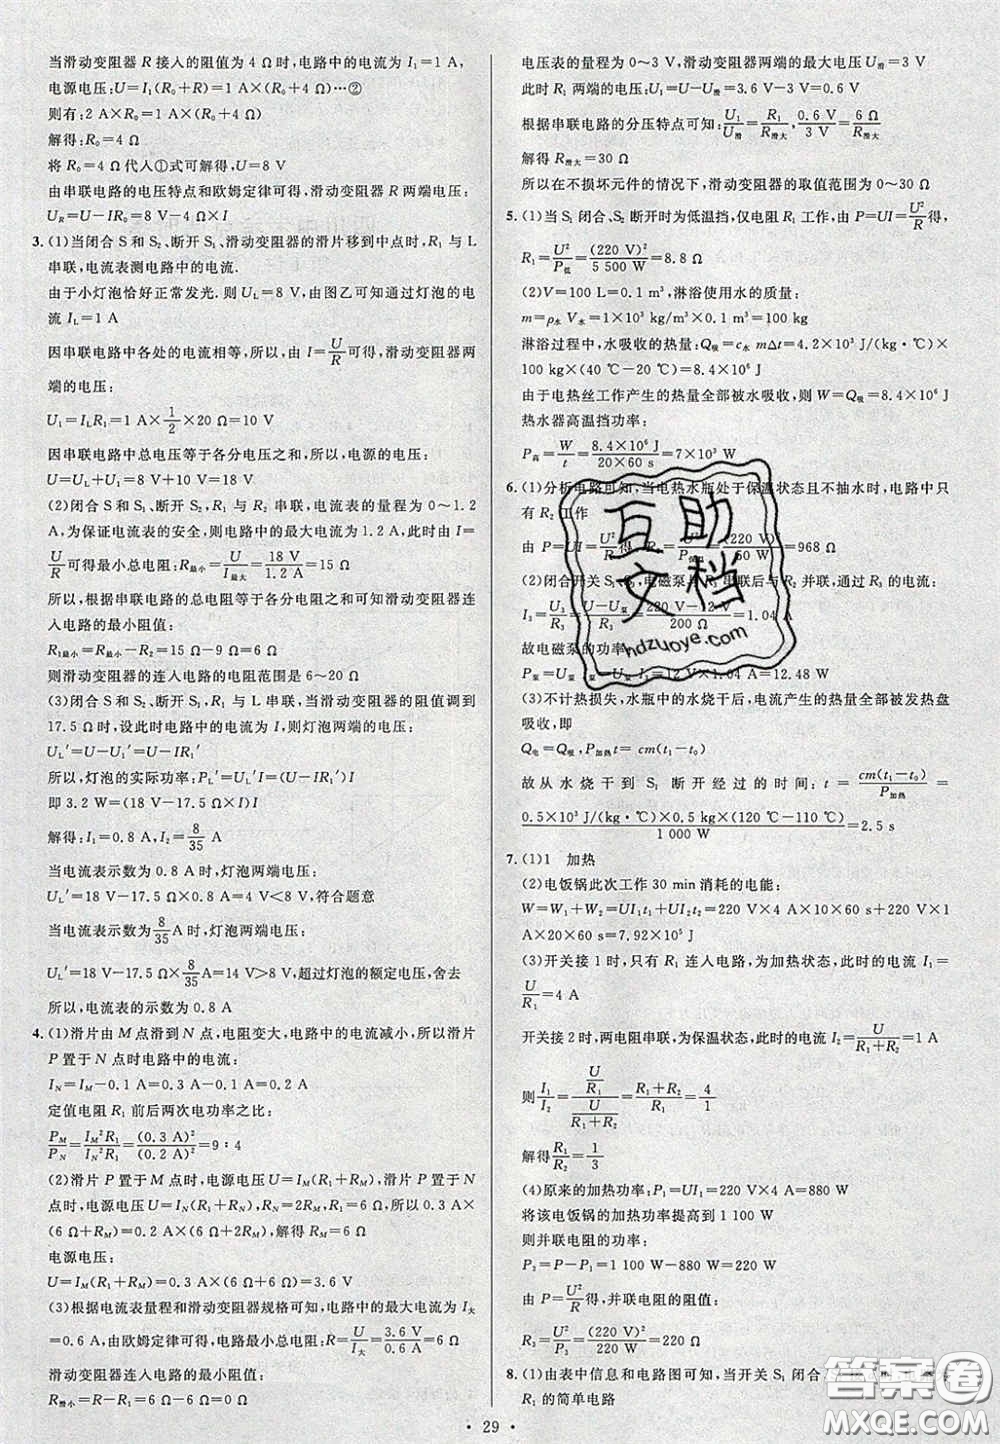 当滑动变阻器 R 接入的阻值为 4 Ω 时,电路中的电流为 I₁=1 A,
电源电压:U=I₁(R₀+R)=1 A×(R₀+4 Ω)…②
则有:2 A×R₀=1 A×(R₀+4 Ω)
解得:R₀=4 Ω
将 R₀=4 Ω 代人①式可解得,U=8 V
由串联电路的电压特点和欧姆定律可得,滑动变阻器 R 两端电压:
U_R=U-IR₀=8 V-4 Ω×I
3. (1)当闭合 S 和 S₂、断开 S₁、滑动变阻器的滑片移到中点时,R₁ 与 L
串联,电流表测电路中的电流.
由于小灯泡恰好正常发光.则 U_L=8 V,由图乙可知通过灯泡的电
流 I_L=1 A
因串联电路中各处的电流相等,所以,由 I=U/R 可得,滑动变阻器两
端的电压:
U₁=I_LR₁=1 A×1/2×20 Ω=10 V
因串联电路中总电压等于各分电压之和,所以,电源的电压:
U=U_L+U₁=8 V+10 V=18 V
(2)闭合 S 和 S₁、断开 S₂,R₁ 与 R₂ 串联,电流表的量程为 0~1.2
A,为保证电流表的安全,则电路中的最大电流为 1.2 A,此时由 I=
U/R 可得最小总电阻:R最小=U/I最大=18 V/1.2 A=15 Ω
所以,根据串联电路的总电阻等于各分电阻之和可得,滑动变阻器连
入电路的最小阻值:
R₁最小=R最小-R₂=15 Ω-9 Ω=6 Ω
则滑动变阻器的连入电路的电阻范围是 6~20 Ω
(3)闭合 S 和 S₂、断开 S₁,R₁ 与 L 串联,滑动变阻器的阻值调到
17.5 Ω时,设此时电路中的电流为 I,则灯泡两端的电压:
U_L′=U-U₁′=U-IR₁′
所以,灯泡的实际功率:P_L′=U_L′I=(U-IR₁′)I
即 3.2 W=(18 V-17.5 Ω×I)I
解得:I₁=0.8 A,I₂=8/35 A
当电流表示数为 0.8 A时,灯泡两端电压:
U_L′=18 V-17.5 Ω×0.8 A=4 V<8 V,符合题意
当电流表示数为 8/35 A时,灯泡两端电压:
U_L′=18 V-17.5 Ω×8/35 A=14 V>8 V,超过灯泡的额定电压,舍去
所以,电流表的示数为 0.8 A
4. (1)滑片由 M 点滑到 N 点,电阻变大,电路中的电流减小,所以滑片
P 置于 N 点时电路中的电流:
I_N=I_M-0.1 A=0.3 A-0.1 A=0.2 A
定值电阻 R₁ 前后两次电功率之比:
P_M/P_N=I_M²R₁/I_N²R₁=(0.3 A)²/(0.2 A)²=9∶4
(2)滑片 P 置于 M 点时,电源电压 U=I_M(R₁+R_M),滑片 P 置于 N
点时,电源电压 U=I_N(R₁+R_N),R_N=2R_M,R₁=6 Ω,所以 0.3 A×
(6 Ω+R_M)=0.2 A×(6 Ω+2R_M),解得 R_M=6 Ω
电源电压:
U=I_M(R₁+R_M)=0.3 A×(6 Ω+6 Ω)=3.6 V
(3)根据电流表量程和滑动变阻器规格可知,电路中的最大电流为 I大
=0.6 A,由欧姆定律可得,电路最小总电阻:R=U/I大=3.6 V/0.6 A=6 Ω
滑动变阻器连入电路的最小阻值:
R滑小=R-R₁=6 Ω-6 Ω=0 Ω
电压表的量程为 0~3 V,滑动变阻器两端的最大电压 U滑=3 V
此时 R₁ 两端的电压:U₁=U-U滑=3.6 V-3 V=0.6 V
根据串联电路的分压特点可知:U₁/U滑=R₁/R滑大,0.6 V/3 V=6 Ω/R滑大
解得 R滑大=30 Ω
所以在不损坏元件的情况下,滑动变阻器的取值范围为 0~30 Ω
5. (1)当 S₁ 闭合、S₂ 断开时为低温挡,仅电阻 R₁ 工作,由 P=UI=U²/R得,
R₁=U²/P低=(220 V)²/5 500 W=8.8 Ω
(2)V=100 L=0.1 m³,淋浴使用水的质量:
m=ρ水 V水=1×10³ kg/m³×0.1 m³=100 kg
淋浴过程中,水吸收的热量:Q吸=c水 mΔt=4.2×10³ J/(kg·℃)×
100 kg×(40 ℃-20 ℃)=8.4×10⁶ J
由于电热丝工作产生的热量全部被水吸收,则 W=Q吸=8.4×10⁶ J
热水器高温挡功率:
P高=W/t=8.4×10⁶ J/20×60 s=7×10³ W
6. (1)分析电路可知,当电热水瓶处于保温状态且不抽水时,电路中只
有 R₂ 工作
由 P=UI=U²/R得 R₂=U²/P保温=(220 V)²/50 W=968 Ω
(2)闭合开关 S₁、S₂,电磁泵与 R₃ 串联后与 R₂ 并联,通过 R₃ 的电流:
I₃=U₃/R₃=U-U泵/R₃=220 V-12 V/200 Ω=1.04 A
故电磁泵的功率:
P泵=U泵 I泵=U泵 I₃=12 V×1.04 A=12.48 W
(3)不计热损失,水瓶中的水烧干后,电流产生的热量全部被发热盘
吸收,即
Q电=Q吸,P加热t=cm(t₁-t₀)
故从水烧干到 S₁ 断开经过的时间:t=cm(t₁-t₀)/P加热=
0.5×10³ J/(kg·℃)×0.5 kg×(120 ℃-110 ℃)/1 000 W=2.5 s
7. (1)1 加热
(2)电饭锅此次工作 30 min 消耗的电能:
W=W₁+W₂=UI₁t₁+UI₂t₂=220 V×4 A×10×60 s+220 V×1
A×20×60 s=7.92×10⁵ J
(3)开关接 1 时,只有 R₁ 连入电路,为加热状态,此时的电流 I₁=
U/R₁=4 A
开关接 2 时,两电阻串联,为保温状态,此时的电流 I₂=U/R₁+R₂=1 A
则 I₁/I₂=(U/R₁)/(U/R₁+R₂)=R₁+R₂/R₁=4/1
解得 R₁/R₂=1/3
(4)原来的加热功率:P₁=UI₁=220 V×4 A=880 W
将该电饭锅的加热功率提高到 1 100 W
则并联电阻的功率:
P₃=P-P₁=1 100 W-880 W=220 W
由 P=U²/R得,并联电阻的阻值:
R₃=U²/P₃=(220 V)²/220 W=220 Ω
8. (1)由表中信息和电路图可知,当开关 S₁ 闭合
R₁ 的简单电路
• 29 •
互助
文档
hdzuoye.com
答案圈
MXQE.COM